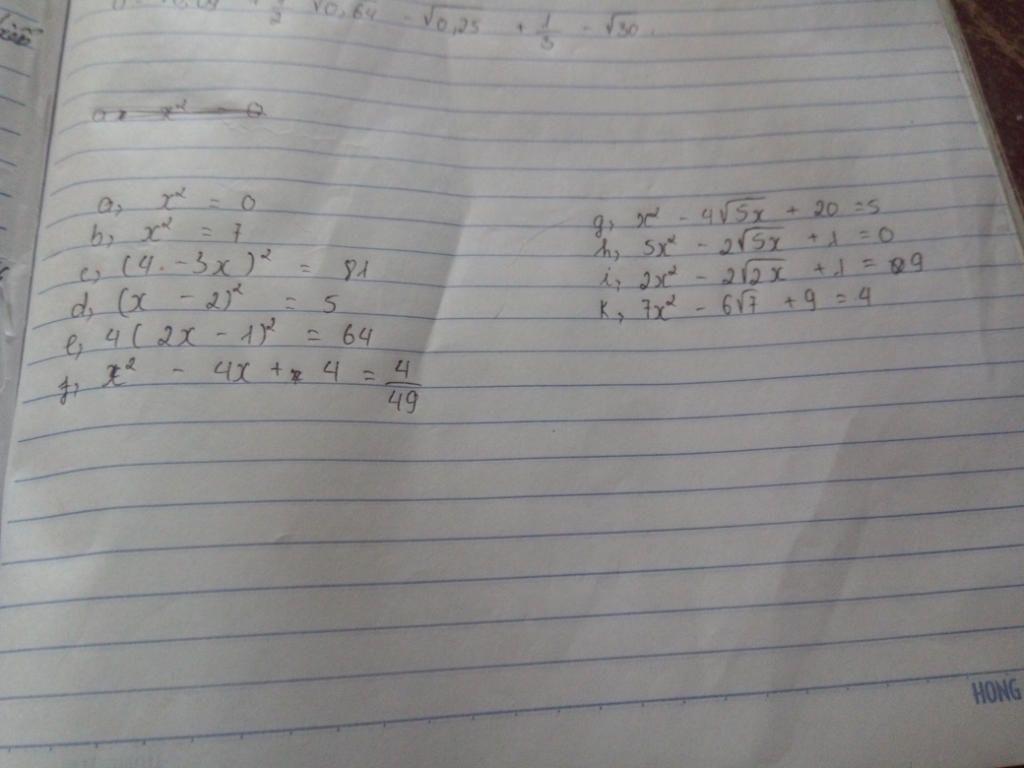 √0,64 - √0,25 + 1/3 - √30.
a, x² = 0
b, x² = 7
c, (4 - 3x)² = 81
d, (x - 2)² = 5
e, 4(2x - 1)² = 64
f, x² - 4x + 4 = 4/49
g, x² - 4√5x + 20 = 5
h, 5x² - 2√5x + 1 = 0
i, 2x² - 2√2x + 1 = 9
k, 7x² - 6√7 + 9 = 4
HONG